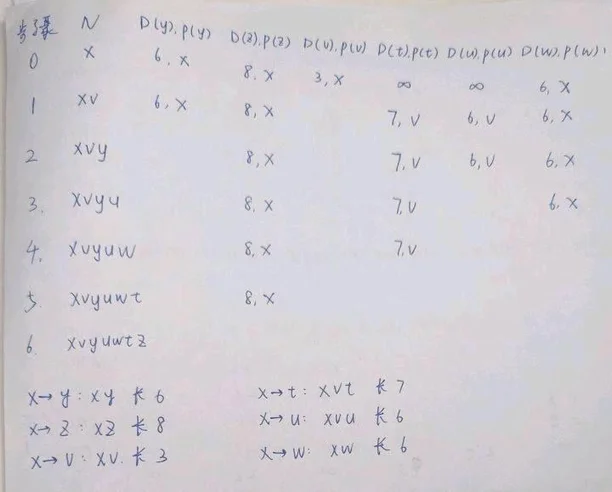 步骤 N D(y),p(y) D(z),p(z) D(v),p(v) D(t),p(t) D(u),p(u) D(w),p(w),
0 x 6,x 8,x 3,x ∞ ∞ 6,x
1 xv 6,x 8,x 7,v 6,v 6,x
2 xvy 8,x 7,v 6,v 6,x
3. xvyu 8,x 7,v 6,x
4. xvyuw 8,x 7,v
5 xvyuwt 8,x
6. xvyuwtz
x→y: xy 长6 x→t: xvt 长7
x→z: xz 长8 x→u: xvu 长6
x→v: xv. 长3 x→w: xw 长6